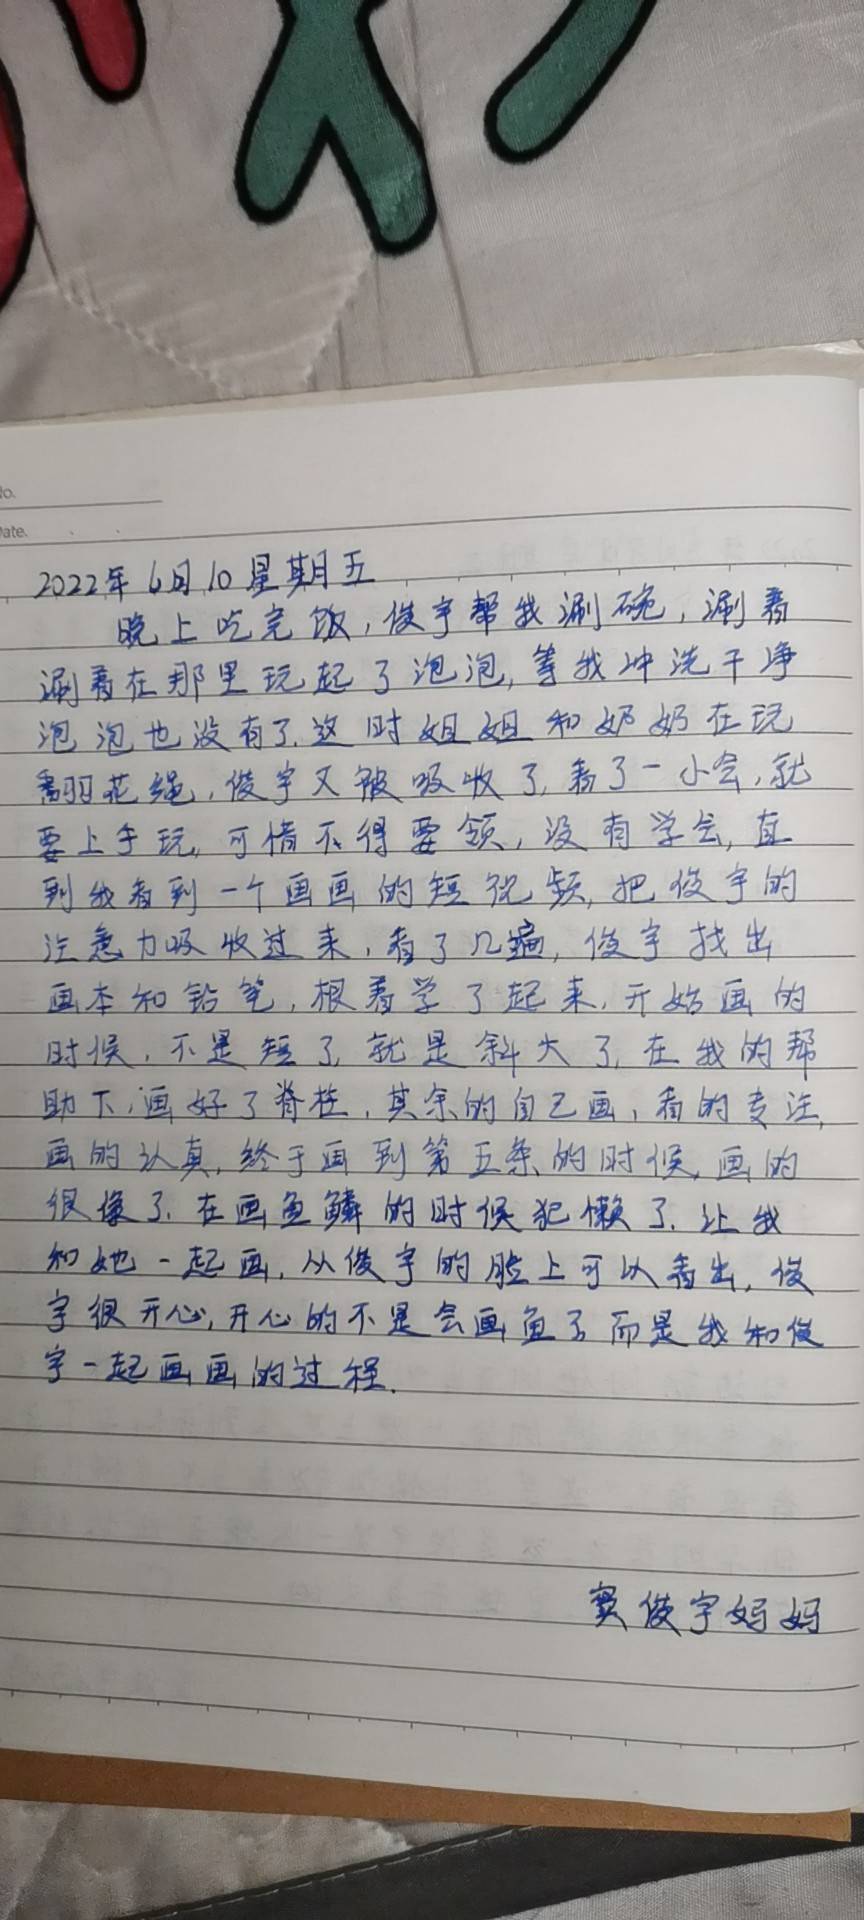 No.
Date.
2022年6月10星期五
晚上吃完饭，俊宇帮我涮碗，涮着
涮着在那里玩起了泡泡，等我冲洗干净
泡泡也没有了.这时姐姐和奶奶在玩
翻花绳，俊宇又被吸收了，看了一小会，就
要上手玩，可惜不得要领，没有学会，直
到我看到一个画画的短视频，把俊宇的
注意力吸收过来，看了几遍，俊宇找出
画本和铅笔，根着学了起来.开始画的
时候，不是短了，就是斜大了，在我的帮
助下，画好了脊柱，其余的自己画，看的专注，
画的认真，终于画到第五条的时候，画的
很像了.在画鱼鳞的时候犯懒了.让我
和她一起画，从俊宇的脸上可以看出，俊
宇很开心，开心的不是会画鱼了而是我和俊
宇一起画画的过程.
窦俊宇妈妈